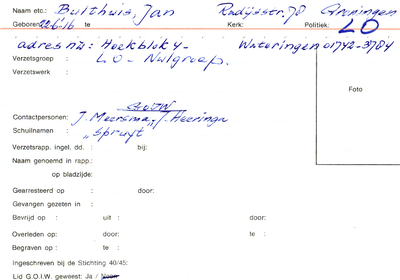 Naam etc.: Bulthuis, Jan Radijsstr. 78 Groningen
Geboren: 22-6-16 te Kerk: Politiek: LO
adres nu: Hoekblok 4- Wateringen 01742-3784
Verzetsgroep : LO - Nulgroep.
Verzetswerk :
Foto
GOUW
Contactpersonen: J. Meersma, T. Heeringa
Schuilnamen : "Spruyt"
Verzetsrapp. ingel. dd. : bij:
Naam genoemd in rapp.:
op bladzijde:
Gearresteerd op : door:
Gevangen gezeten in :
Bevrijd op : uit : door:
Overleden op: door: te :
Begraven op : te :
Ingeschreven bij de Stichting 40/45:
Lid G.O.I.W. geweest: Ja / Neen